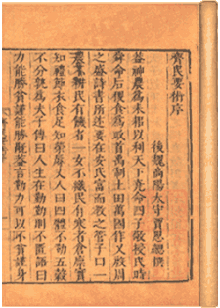 齊民要術序
後魏高陽太守賈思勰撰
蓋神農為耒耜以利天下堯命四子敬授民時
舜命后稷食為政首禹制土田萬國作乂殷周
之盛詩書所述要在安民富而教之管子曰一
農不耕民有饑者一女不織民有寒者倉廩實
知禮節衣食足知榮辱丈人曰四體不勤五穀
不分孰為夫子傳曰人生在勤勤則不匱語曰
力能勝貧謹能勝禍蓋言勤力可以不貧謹身